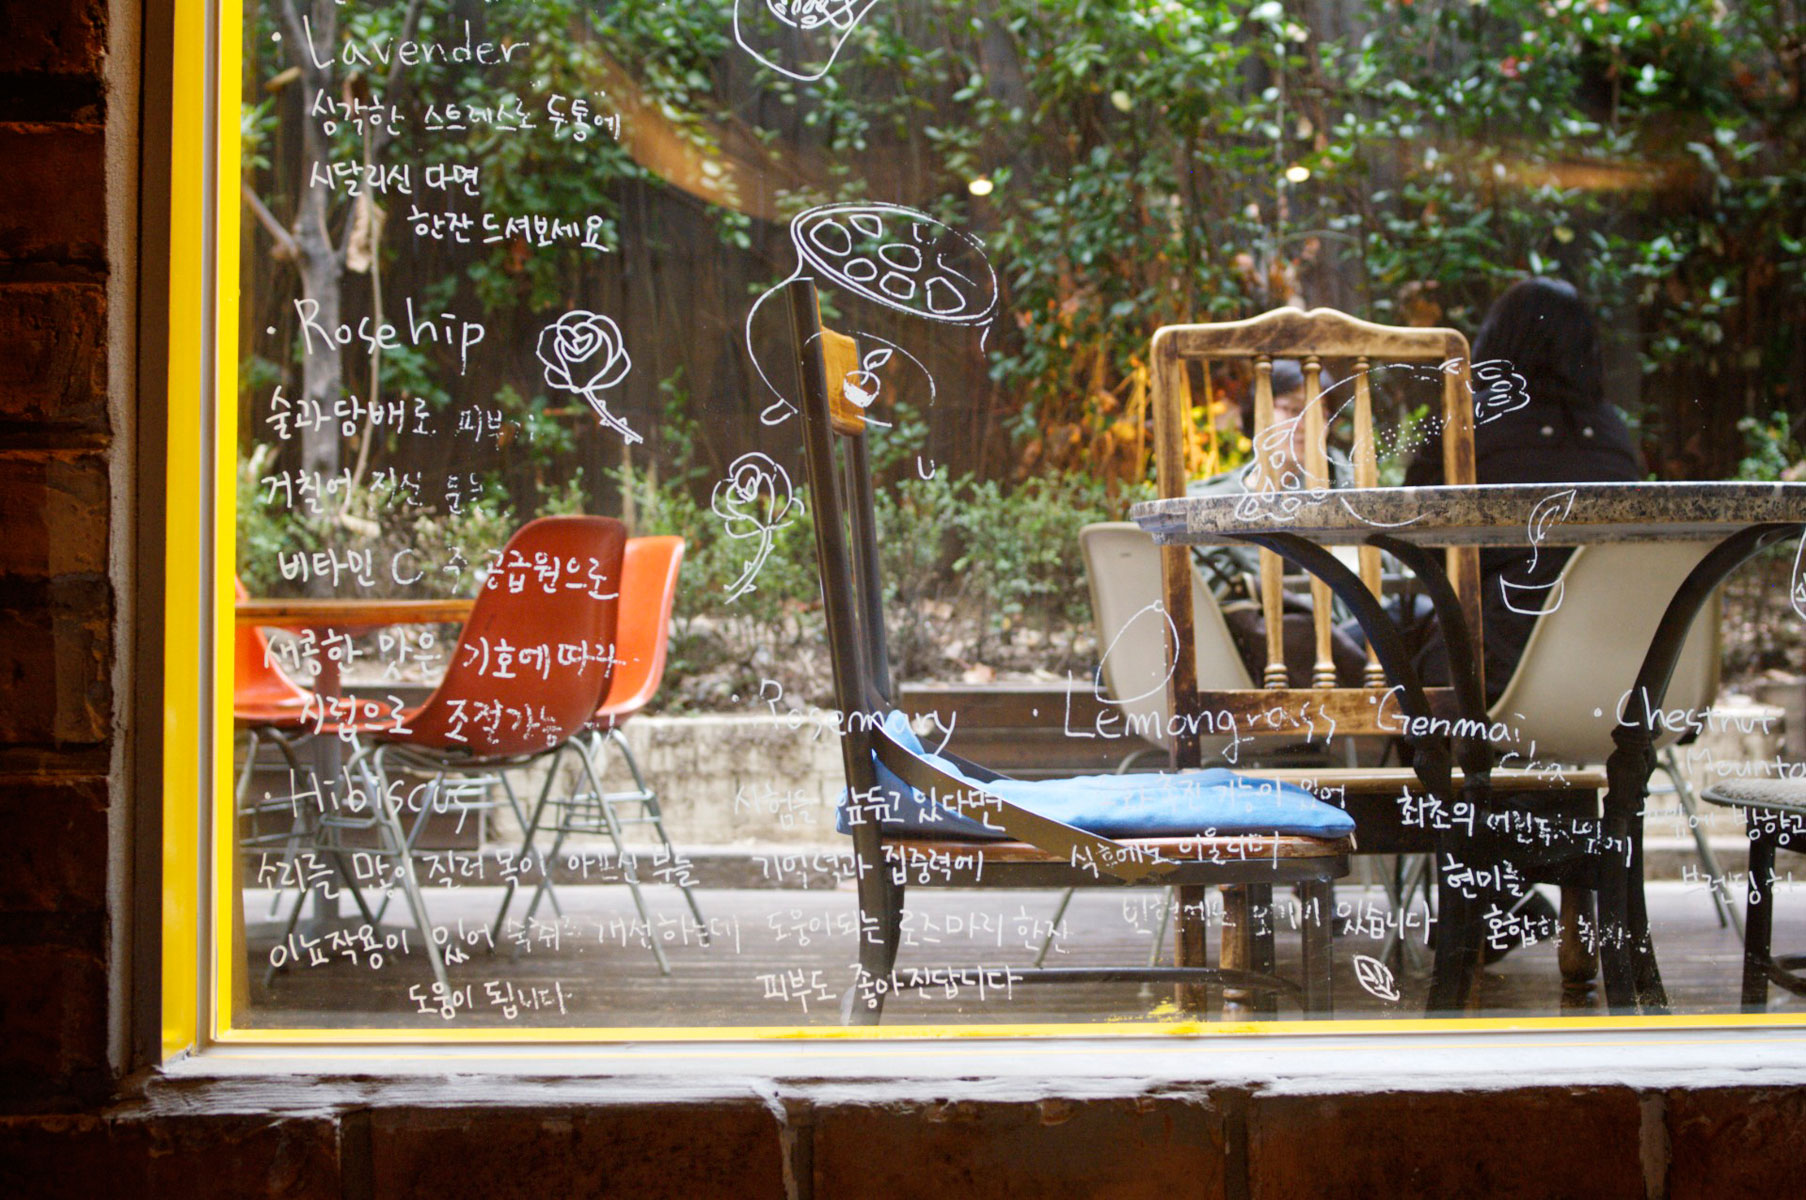 · Lavender
심각한 스트레스로 "두통"에
시달리신 다면
한잔 드셔보세요
· Rosehip
술과 담배로 피부가
거칠어 지신 분들
비타민 C 주 공급원으로
새콤한 맛은 기호에 따라
시럽으로 조절가능
· Hibiscus
소리를 많이 질러 목이 아프신 분들
이뇨작용이 있어 숙취를 개선하는데
도움이 됩니다
· Rosemary
시험을 앞두고 있다면
기억력과 집중력에
도움이되는 로즈마리 한잔
피부도 좋아진답니다
· Lemongrass
촉진 기능이 있어
식후에도 어울리며
있습니다
· Genmai
cha
최초의 어린녹차잎에
현미를
혼합한
· Chestnut
Mounta
방향고
브렌딩 하